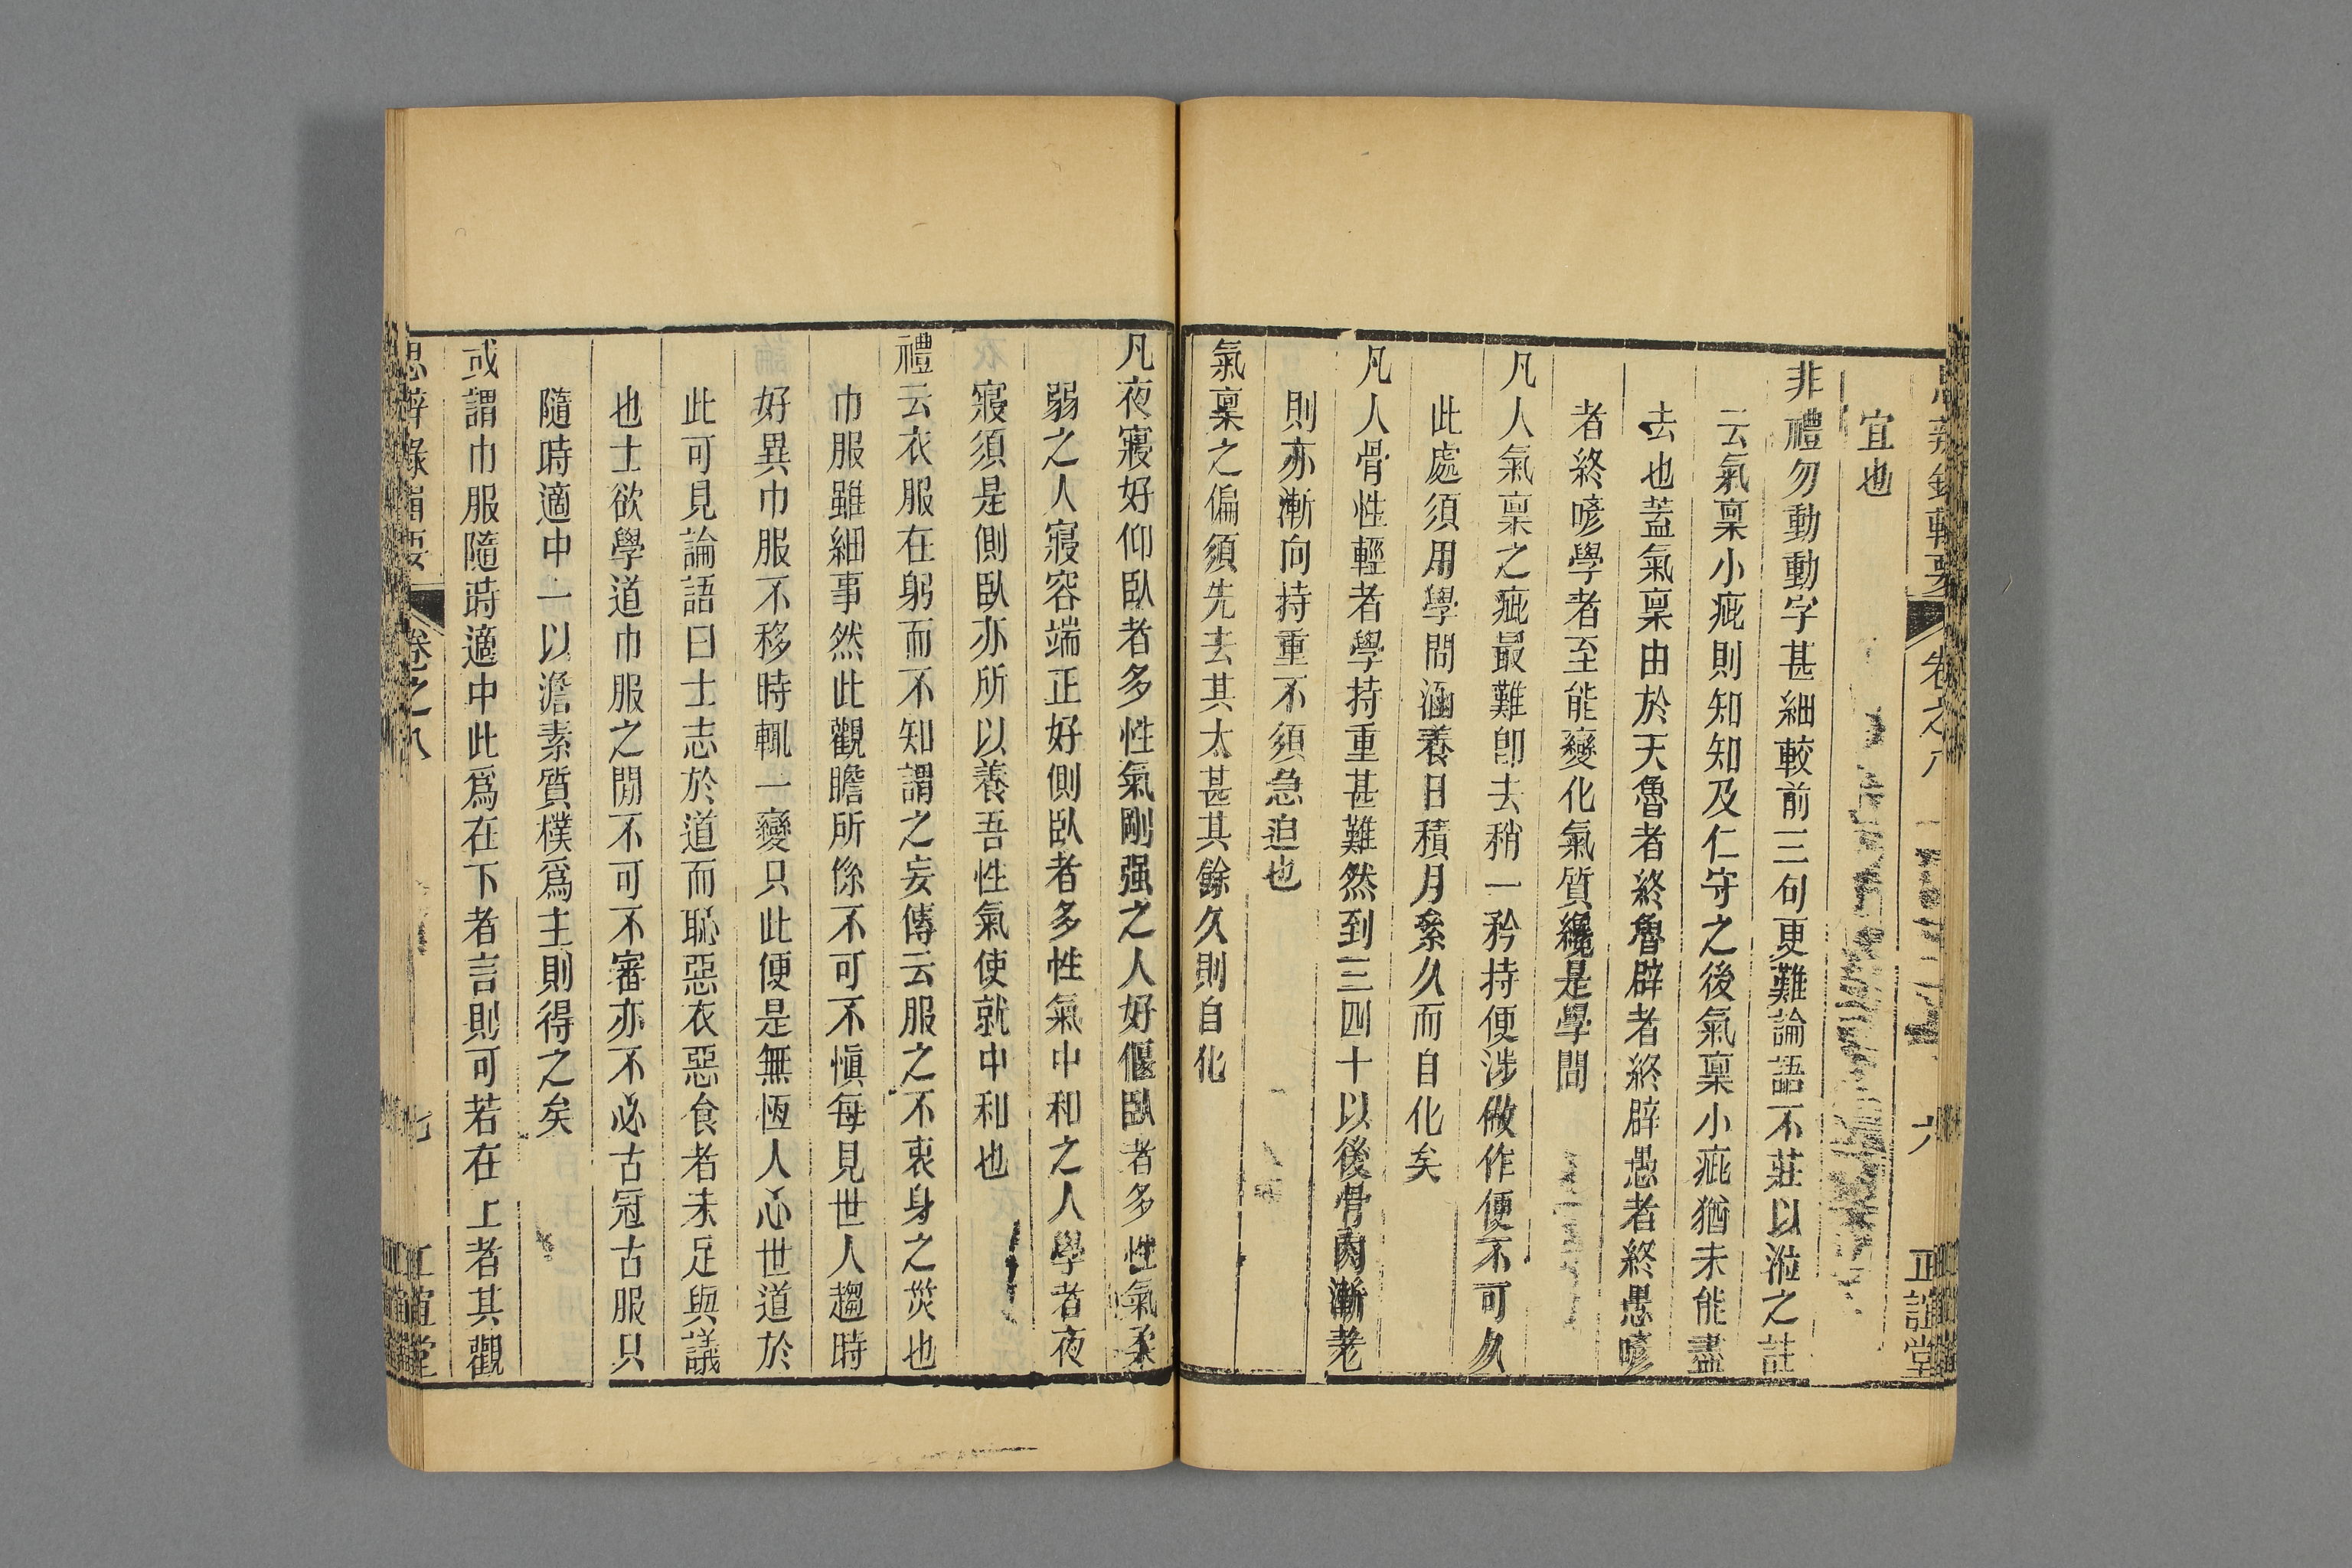 思辨錄輯要 卷之八 六 正誼堂
宜也
非禮勿動動字甚細較前三句更難論語不莊以涖之註
云氣稟小疵則知知及仁守之後氣稟小疵猶未能盡
去也蓋氣稟由於天魯者終魯辟者終辟愚者終愚喭
者終喭學者至能變化氣質纔是學問
凡人氣稟之疵最難卽去稍一矜持便涉做作便不可久
此處須用學問涵養日積月絫久而自化矣
凡人骨性輕者學持重甚難然到三四十以後骨肉漸老
則亦漸向持重不須急迫也
氣稟之偏須先去其太甚其餘久則自化
凡夜寢好仰臥者多性氣剛强之人好偃臥者多性氣柔
弱之人寢容端正好側臥者多性氣中和之人學者夜
寢須是側臥亦所以養吾性氣使就中和也
禮云衣服在躬而不知謂之妄傳云服之不衷身之災也
巾服雖細事然此觀瞻所係不可不愼每見世人趨時
好異巾服不移時輒一變只此便是無恆人心世道於
此可見論語曰士志於道而恥惡衣惡食者未足與議
也士欲學道巾服之閒不可不審亦不必古冠古服只
隨時適中一以澹素質樸爲主則得之矣
或謂巾服隨時適中此爲在下者言則可若在上者其觀
思辨錄輯要 卷之八 七 正誼堂